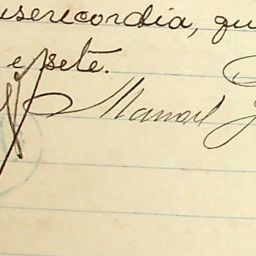 isericordia, qu
e sete.
Manoel J